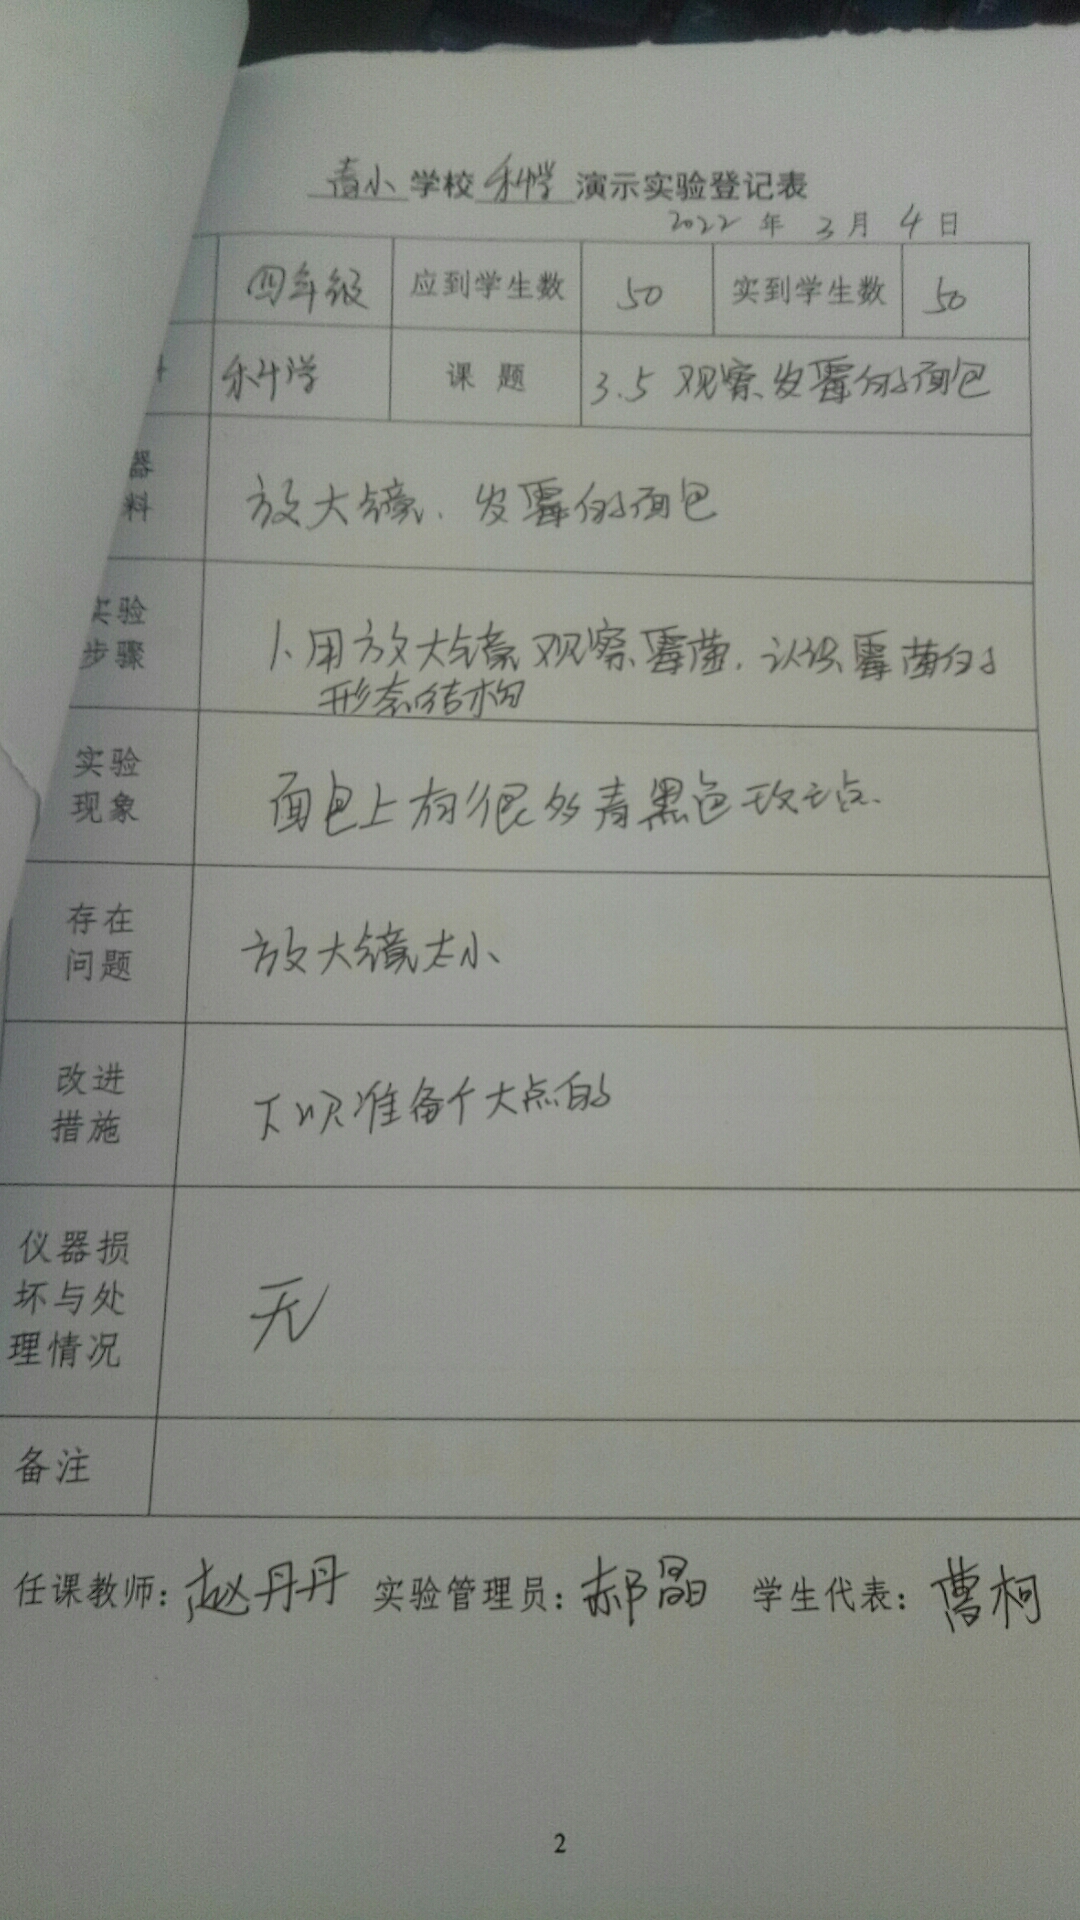 青小学校科学演示实验登记表
2022年3月4日
四年级 应到学生数 50 实到学生数 50
科学 课题 3.5 观察发霉的面包
器
料
放大镜、发霉的面包
实验
步骤
1、用放大镜观察霉菌，认识霉菌的
形态结构
实验
现象
面包上有很多青黑色斑点.
存在
问题
放大镜太小
改进
措施
下次准备个大点的
仪器损
坏与处
理情况
无
备注
任课教师：赵丹丹 实验管理员：郝晶 学生代表：曹柯
2